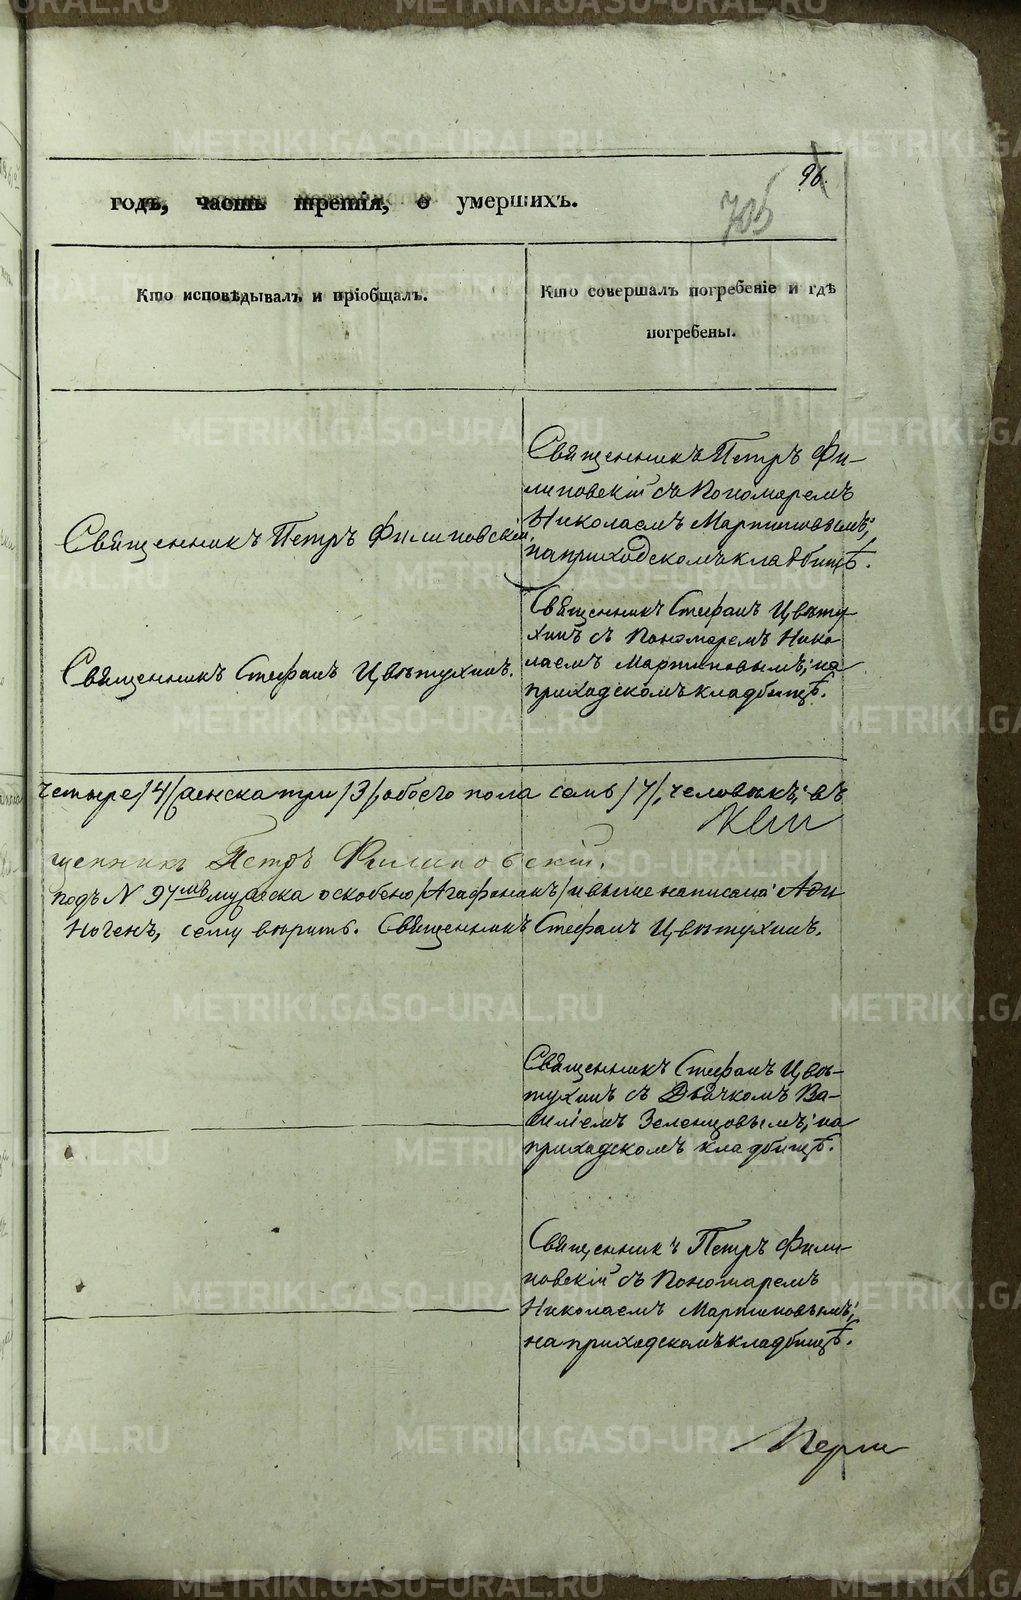 96
705
годъ, часть третія, о умершихъ.
Кто исповѣдывалъ и пріобщалъ.
Кто совершалъ погребеніе и гдѣ
погребены.
Священникъ Петръ Филиповскій.
Священникъ Петръ Фи-
липовскій съ Пономаремъ
Николаемъ Мартиновымъ;
на приходскомъ кладбищѣ.
Священникъ Стефанъ Цвѣтухинъ.
Священникъ Стефанъ Цвѣту
хинъ съ Пономаремъ Нико
лаемъ Мартиновымъ; на
приходскомъ кладбищѣ.
четыре /4/ женска три /3/, обоего пола семь /7/, человѣкъ; въ
щенникъ Петръ Филиповскій.
подъ N 97мъ муж еска оскобено /Агафоникъ/ и выше написана Аѳи
ногенъ, сему вѣрить. Священникъ Стефанъ Цвѣтухинъ.
Священникъ Стефанъ Цвѣ-
тухинъ съ Дьячкомъ Ва-
силіемъ Зеленцовымъ; на
приходскомъ кладбищѣ.
Священникъ Петръ Фили-
повскій съ Пономаремъ
Николаемъ Мартиновымъ;
на приходскомъ кладбищѣ.
METRIKI.GASO-URAL.RU